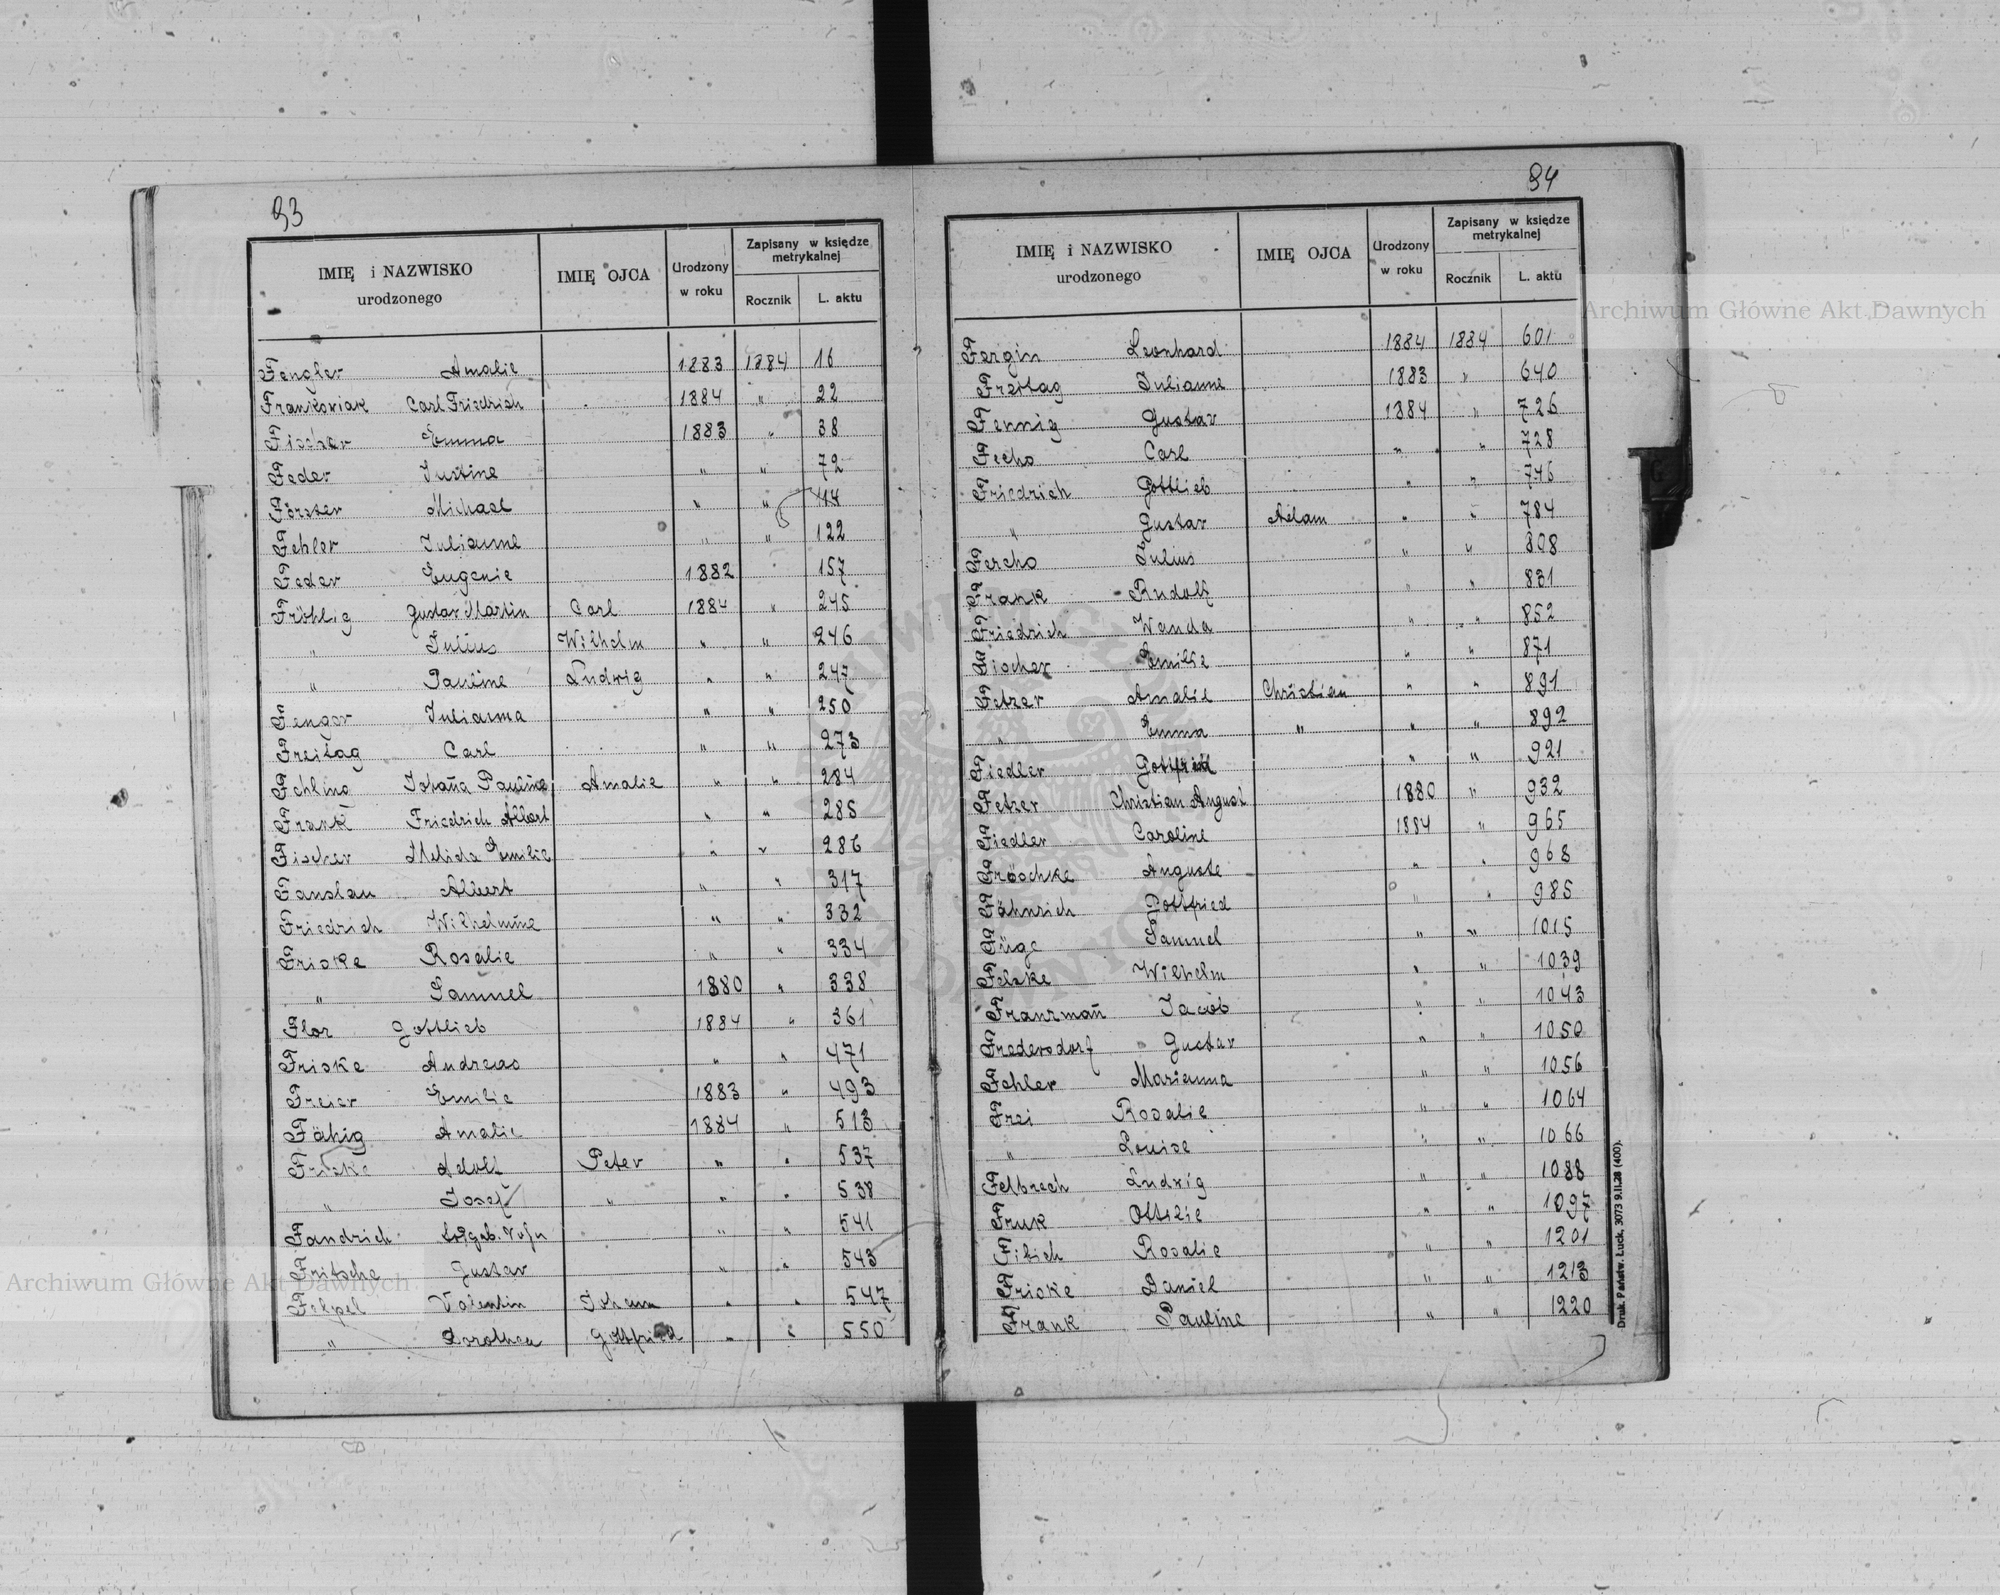 93
IMIĘ i NAZWISKO urodzonego IMIĘ OJCA Urodzony w roku Zapisany w księdze metrykalnej Rocznik L. aktu
Fengler Amalie 1883 1884 16
Frankoviak Carl Friedrich 1884 " 22
Fischer Emma 1883 " 38
Feder Justine " " 72
Förster Michael " "
Fehler Julianne " " 122
Feder Eugenie 1882 " 157
Fröhlig Gustav Martin Carl 1884 " 245
" Julius Wilhelm " " 246
" Pauline Ludwig " " 247
Fenger Julianna " " 250
Freitag Carl " " 273
Johaña Pauline Amalie " " 284
Frank Friedrich Albert " " 285
Fischer Emilie " " 286
Fanslau Albert " " 317
Friedrich Wilhelmine " " 332
Friske Rosalie " " 334
" Samuel 1880 " 338
Flor Gottlieb 1884 " 361
Friske Andreas " " 471
Freier Emilie 1883 " 493
Fähig Amalie 1884 " 513
Friske Adolf Peter " " 537
" Josef " " " 538
Fandrich " " 541
Fritsche Gustav " " 543
Valentin Johann " " 547
" Dorothea Gottfried " " 550
94
IMIĘ i NAZWISKO urodzonego IMIĘ OJCA Urodzony w roku Zapisany w księdze metrykalnej Rocznik L. aktu
Fergin Leonhard 1884 1884 601
Freitag Julianne 1883 " 640
Fennig Gustav 1884 " 726
Fecho Carl " " 728
Friedrich Gottlieb " " 746
" Gustav Adam " " 784
Fercho Julius " " 808
Frank Rudolf " " 831
Friedrich Wanda " " 852
Fischer Emilie " " 871
Fetzer Amalie Christian " " 891
" Emma " " " 892
Fiedler Gottfried " " 921
Fetzer Christian August 1880 " 932
Fiedler Caroline 1884 " 965
Fröschke Auguste " " 968
Fähnrich Gottfried " " 985
Füge Samuel " " 1015
Felske Wilhelm " " 1039
Franzmañ Jacob " " 1043
Fredersdorf Gustav " " 1050
Fehler Marianna " " 1056
Frei Rosalie " " 1064
" Louise " " 1066
Felbrech Ludwig " " 1088
Fruk Ottilie " " 1097
Filich Rosalie " " 1201
Friske Daniel " " 1213
Frank Pauline " " 1220
Druk. Państw. Łuck, 3073 9.II.28 (400).
Archiwum Główne Akt Dawnych
Archiwum Główne Akt Dawnych